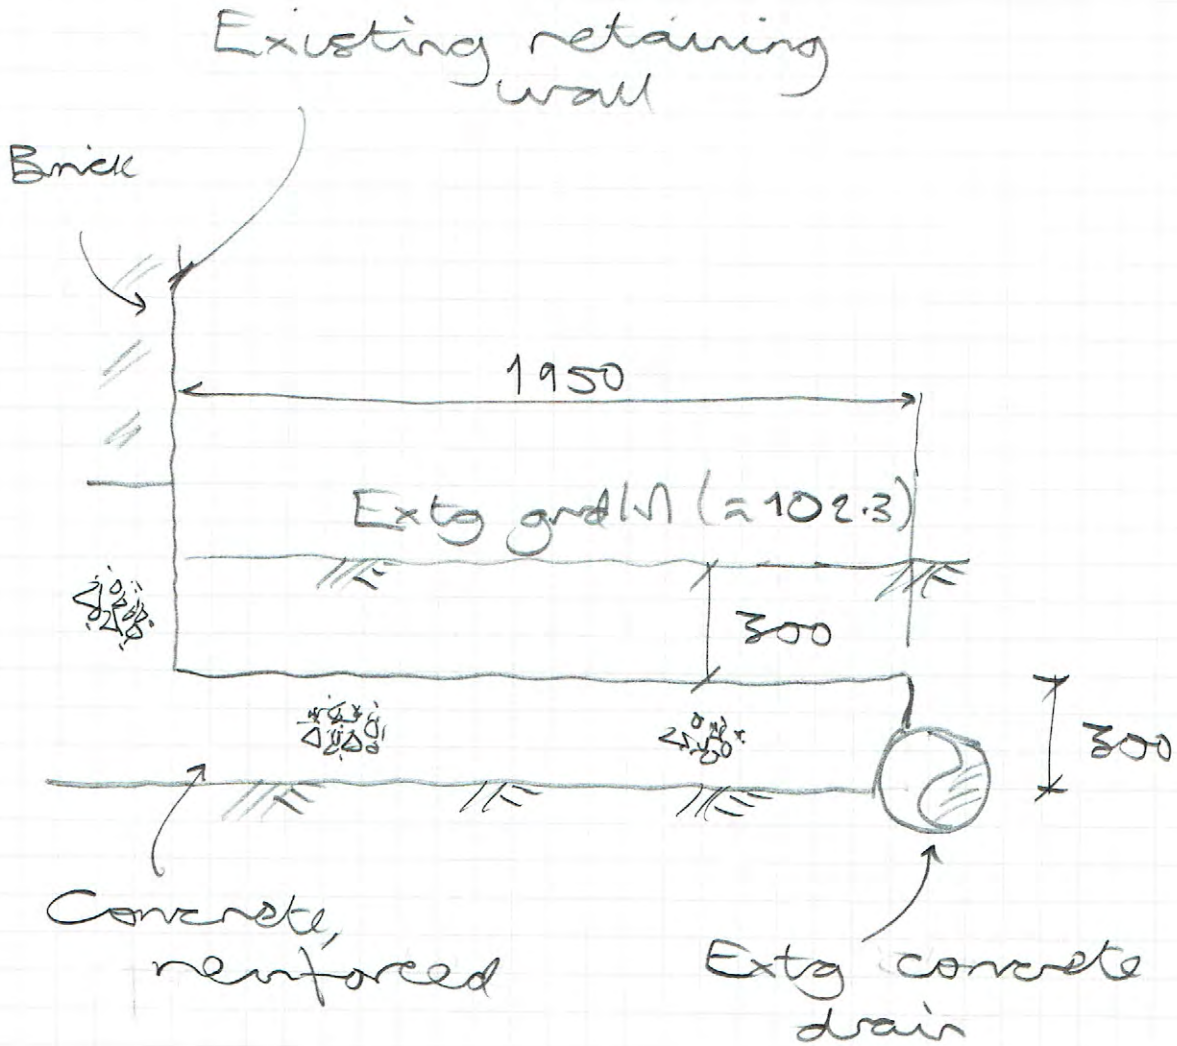 Existing retaining
wall
Brick
1950
Extg grdlvl (≈102.3)
300
300
Concrete,
reinforced
Extg concrete
drain